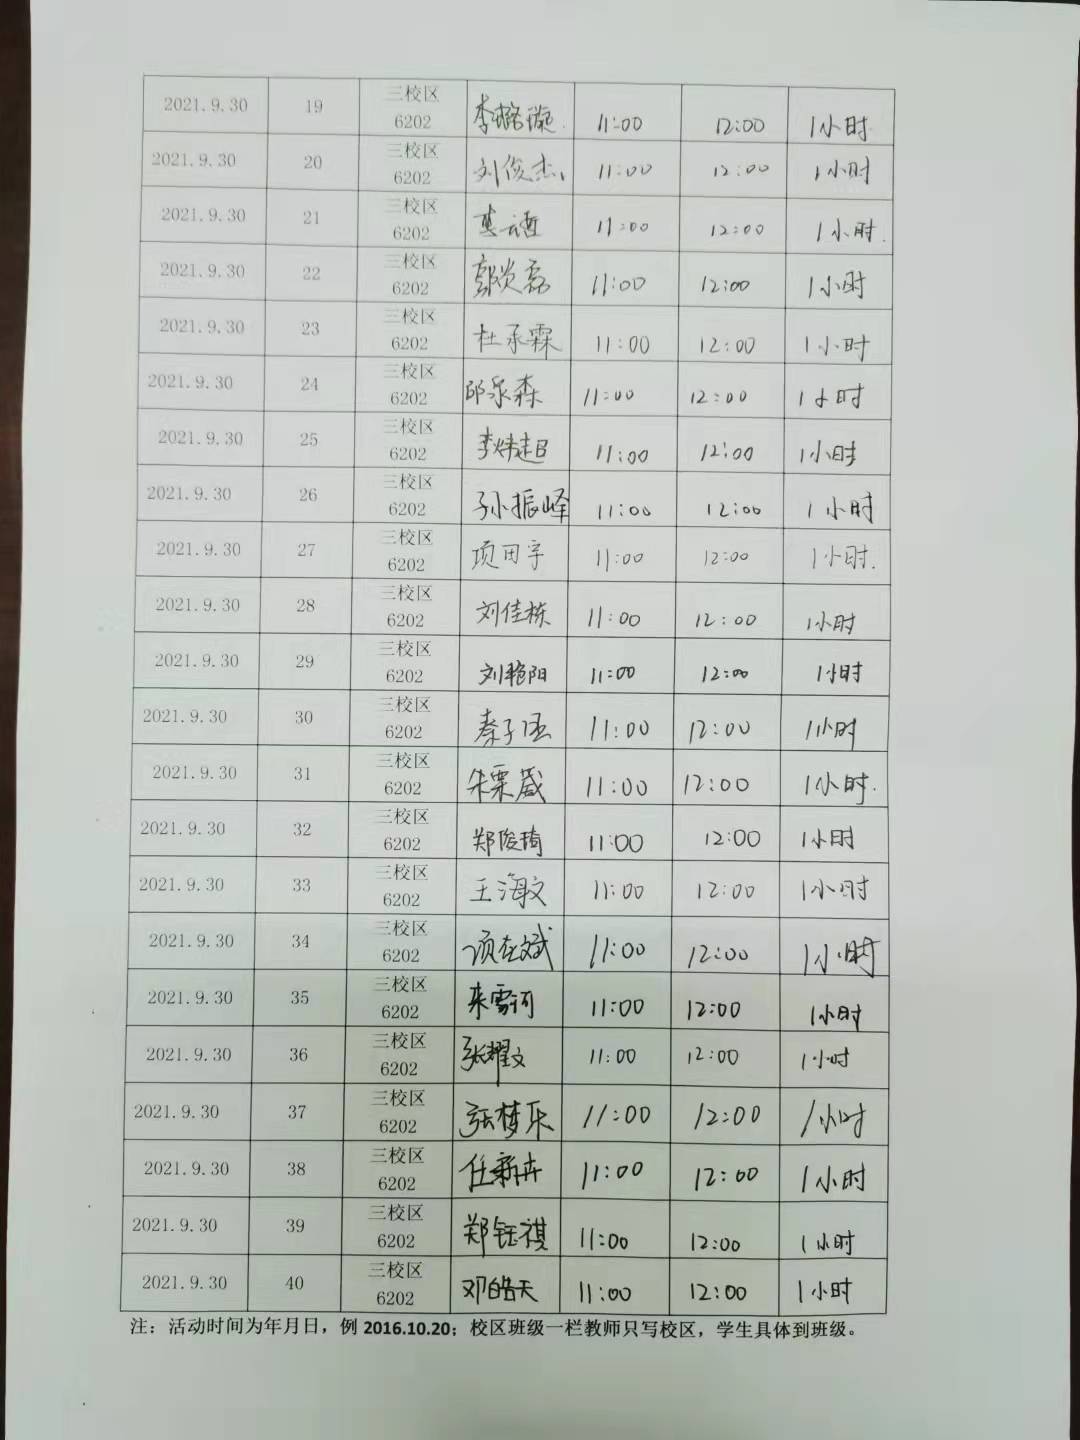 2021.9.30 19 三校区 6202 李璐璇 11:00 12:00 1小时
2021.9.30 20 三校区 6202 刘俊杰 11:00 12:00 1小时
2021.9.30 21 三校区 6202 11:00 12:00 1小时
2021.9.30 22 三校区 6202 郭炎磊 11:00 12:00 1小时
2021.9.30 23 三校区 6202 杜承霖 11:00 12:00 1小时
2021.9.30 24 三校区 6202 邱泉森 11:00 12:00 1小时
2021.9.30 25 三校区 6202 李炜超 11:00 12:00 1小时
2021.9.30 26 三校区 6202 孙振峰 11:00 12:00 1小时
2021.9.30 27 三校区 6202 项田宇 11:00 12:00 1小时
2021.9.30 28 三校区 6202 刘佳栋 11:00 12:00 1小时
2021.9.30 29 三校区 6202 刘艳阳 11:00 12:00 1小时
2021.9.30 30 三校区 6202 11:00 12:00 1小时
2021.9.30 31 三校区 6202 朱栗葳 11:00 12:00 1小时
2021.9.30 32 三校区 6202 郑俊琦 11:00 12:00 1小时
2021.9.30 33 三校区 6202 王海文 11:00 12:00 1小时
2021.9.30 34 三校区 6202 项在斌 11:00 12:00 1小时
2021.9.30 35 三校区 6202 来雪河 11:00 12:00 1小时
2021.9.30 36 三校区 6202 张耀文 11:00 12:00 1小时
2021.9.30 37 三校区 6202 张梦乐 11:00 12:00 1小时
2021.9.30 38 三校区 6202 任新卉 11:00 12:00 1小时
2021.9.30 39 三校区 6202 郑钰祺 11:00 12:00 1小时
2021.9.30 40 三校区 6202 邓皓天 11:00 12:00 1小时
注：活动时间为年月日，例 2016.10.20；校区班级一栏教师只写校区，学生具体到班级。